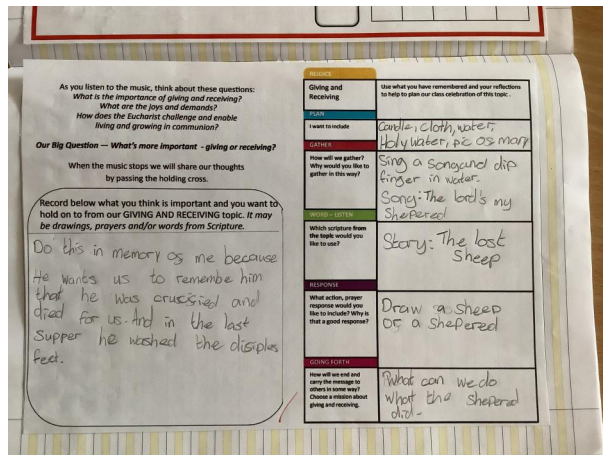 As you listen to the music, think about these questions:
What is the importance of giving and receiving?
What are the joys and demands?
How does the Eucharist challenge and enable
living and growing in communion?
Our Big Question — What's more important - giving or receiving?
When the music stops we will share our thoughts
by passing the holding cross.
Record below what you think is important and you want to
hold on to from our GIVING AND RECEIVING topic. It may
be drawings, prayers and/or words from Scripture.
Do this in memory of me because
He wants us to remembe him
that he was crusified and
died for us. And in the last
Supper he washed the disiples
feet.
REJOICE
Giving and
Receiving
Use what you have remembered and your reflections
to help to plan our class celebration of this topic .
PLAN
I want to include
Candle, cloth, water,
Holy water, pic of mary
GATHER
How will we gather?
Why would you like to
gather in this way?
Sing a song and dip
finger in water.
Song: The lord's my
Shepered
WORD – LISTEN
Which scripture from
the topic would you
like to use?
Story: The lost
Sheep
RESPONSE
What action, prayer
response would you
like to include? Why is
that a good response?
Draw a sheep
or a shepered
GOING FORTH
How will we end and
carry the message to
others in some way?
Choose a mission about
giving and receiving.
What can we do
what the shepered
did-